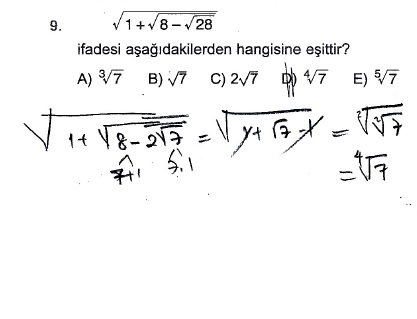 9. √(1+√(8−√28))
ifadesi aşağıdakilerden hangisine eşittir?
A) ∛7 B) √7 C) 2√7 D) ∜7 E) ⁵√7
√(1+√(8−2√7)) = √(1+√7−1) = ²√(²√7)
7+1 7.1
= ⁴√7